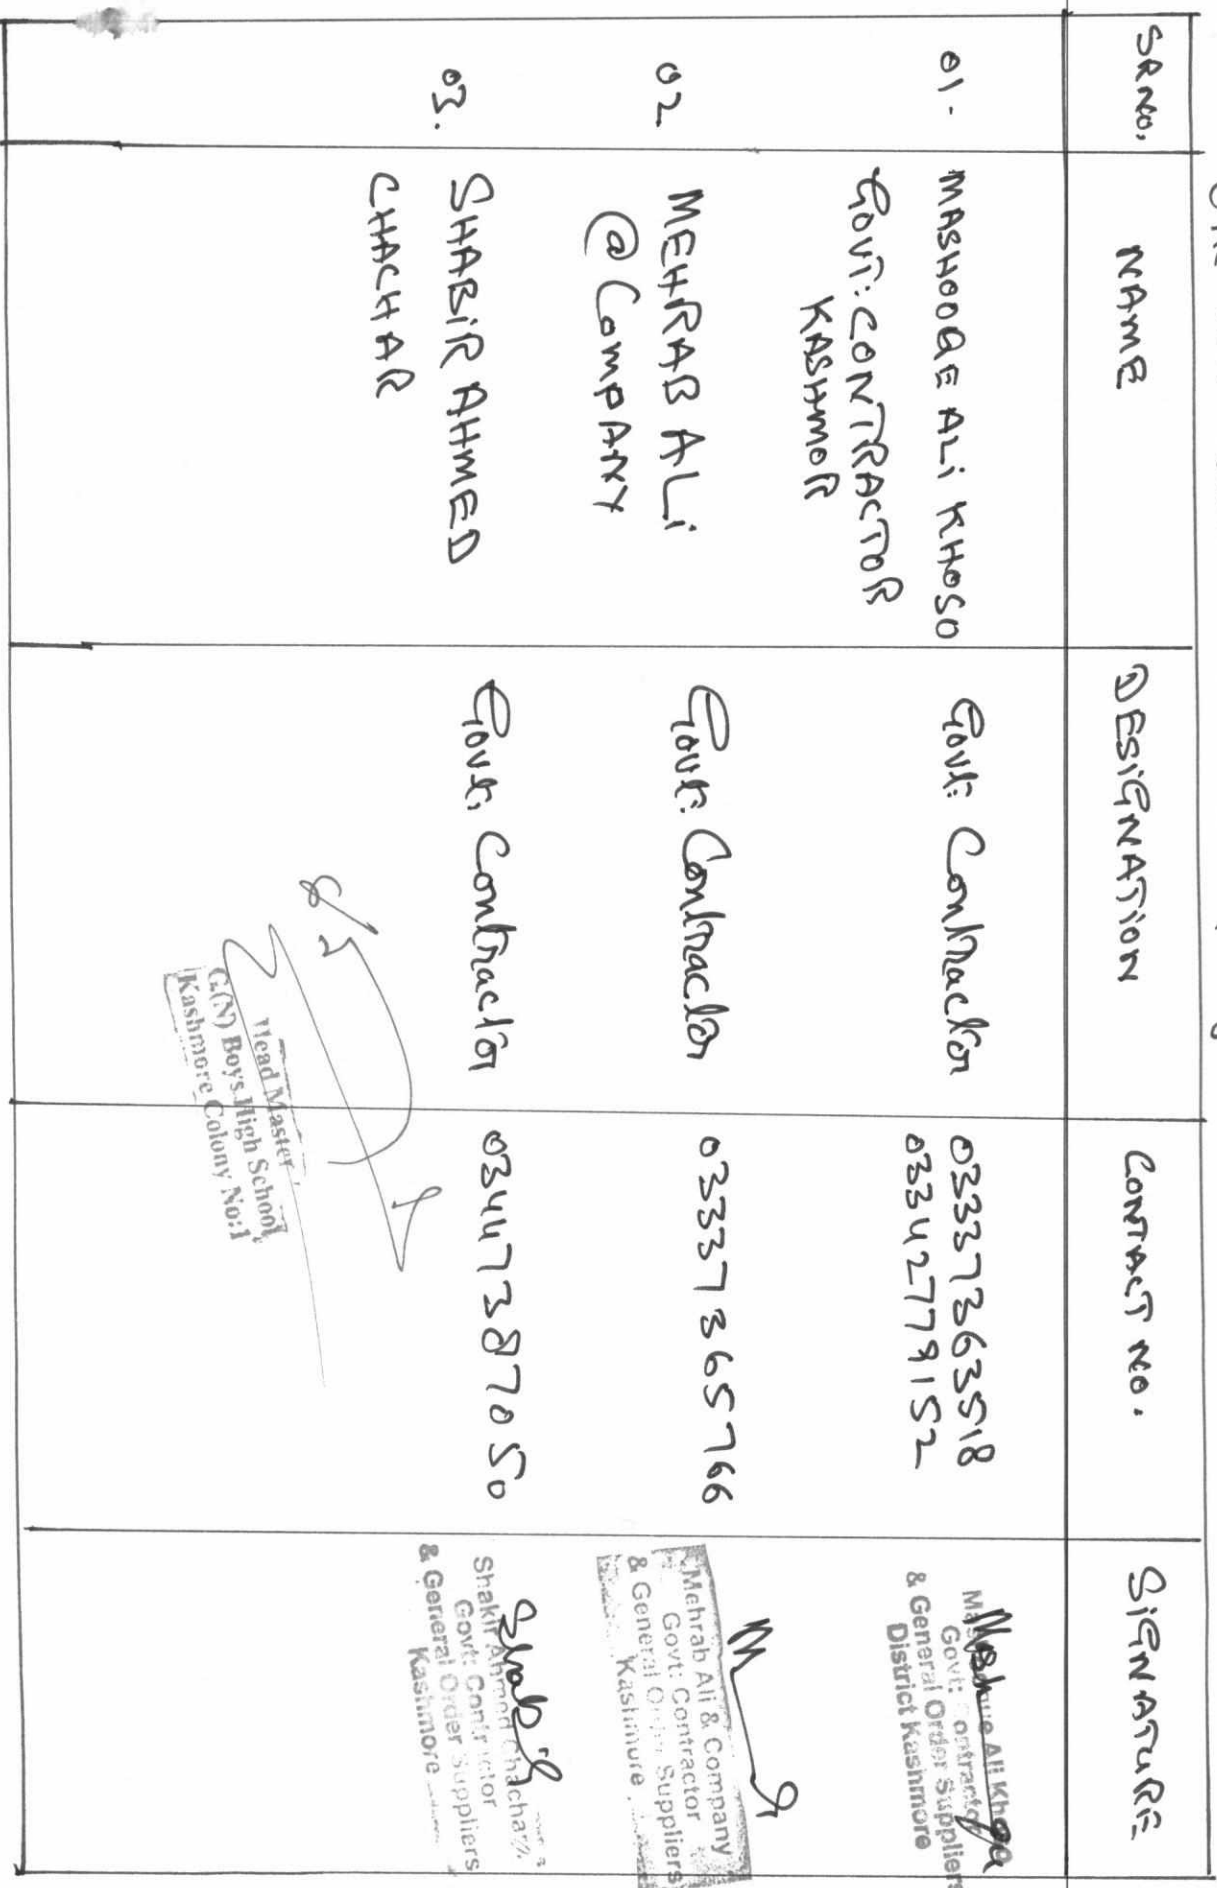 SR NO. NAME DESIGNATION CONTACT NO. SIGNATURE
01. MASHOOQE ALI KHOSO Govt: Contractor 03337363518
GOVT: CONTRACTOR 03342779152
KASHMOR
Ali Khoso
Govt: Contractor
& General Order Suppliers
District Kashmore
02 MEHRAB ALI Govt: Contractor 03337365766
@ COMPANY
Mehrab Ali & Company
Govt: Contractor
& General Order Suppliers
Kashmore
03. SHABIR AHMED Govt: Contractor 03447387050
CHACHAR
Shakir Ahmed Chachar
Govt: Contractor
& General Order Suppliers
Kashmore
Head Master
G.(N) Boys High School
Kashmore Colony No:1